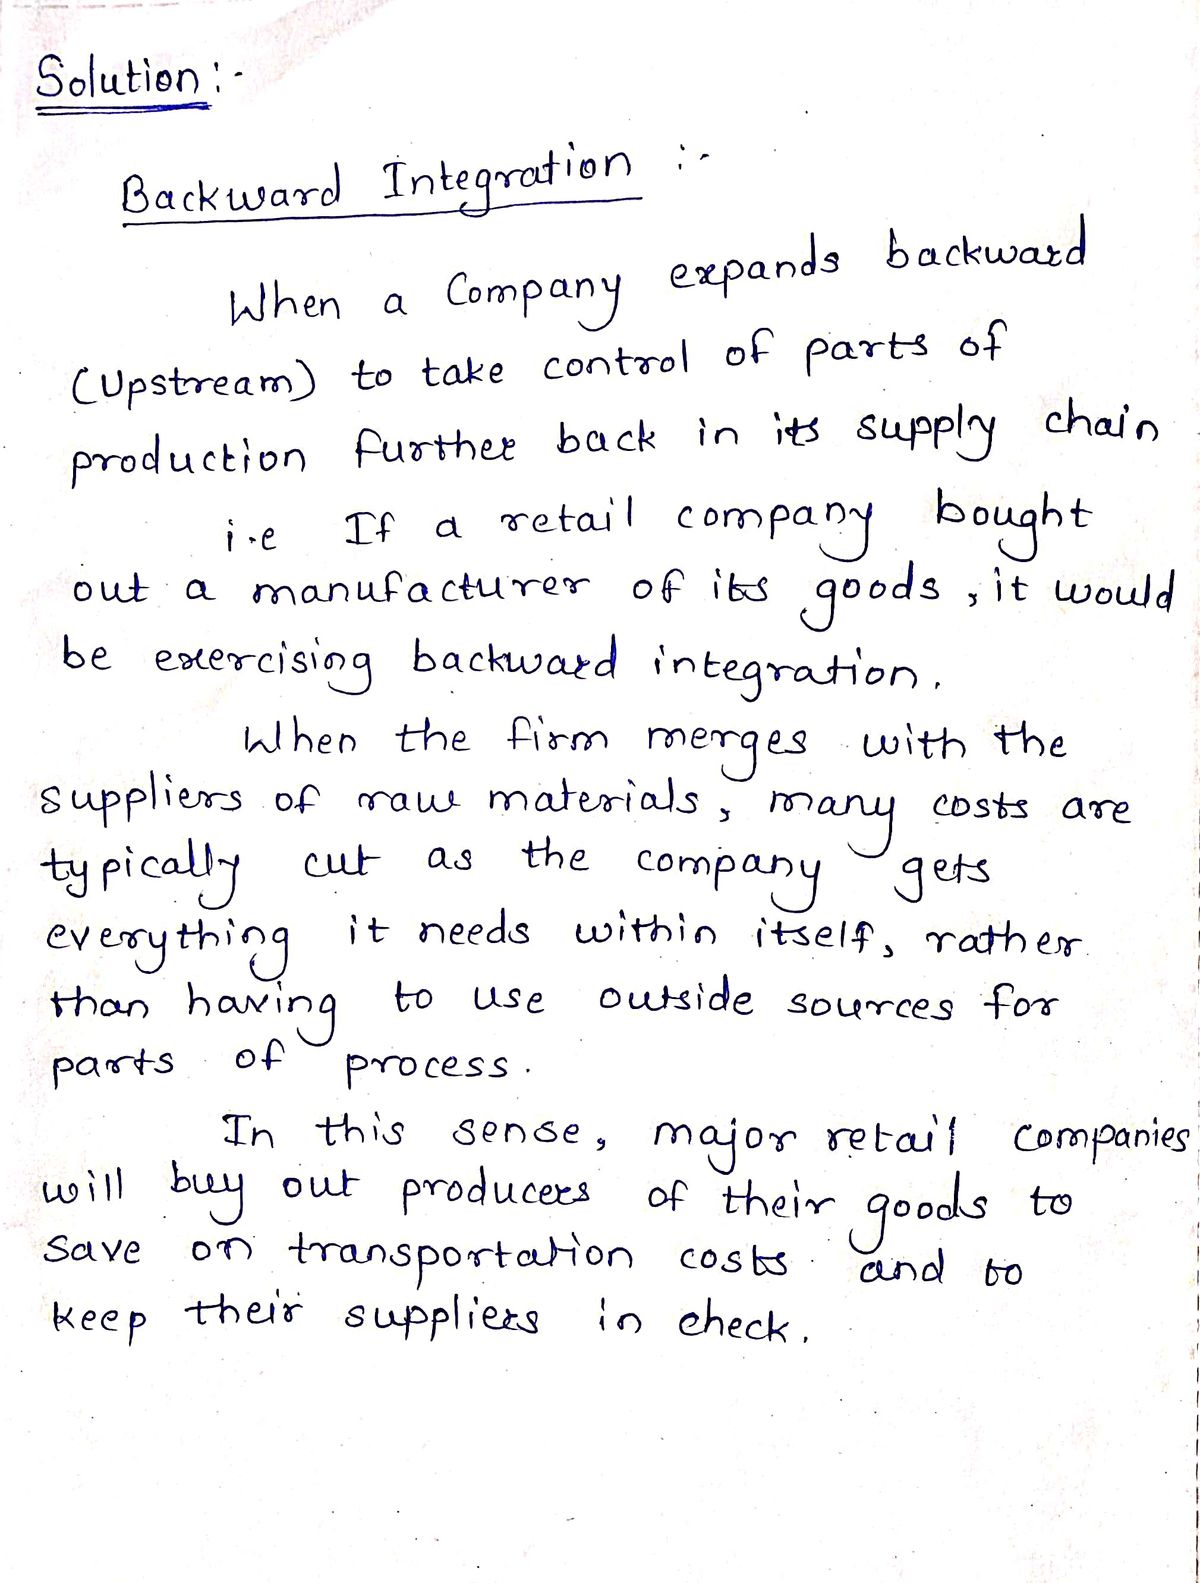 Solution :-
Backward Integration :-
When a Company expands backward
(Upstream) to take control of parts of
production further back in its supply chain
i.e If a retail company bought
out a manufacturer of its goods, it would
be exercising backward integration.
When the firm merges with the
suppliers of raw materials, many costs are
typically cut as the company gets
everything it needs within itself, rather
than having to use outside sources for
parts of process.
In this sense, major retail companies
will buy out producers of their goods to
save on transportation costs and to
keep their suppliers in check.